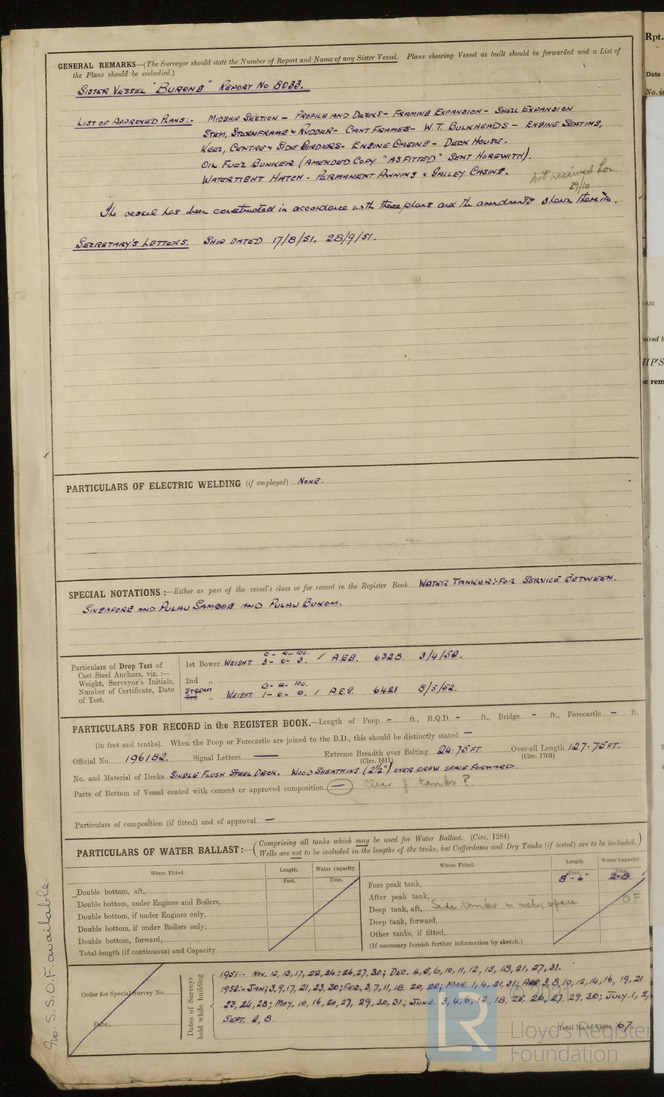 GENERAL REMARKS—(The Surveyor should state the Number of Report and Name of any Sister Vessel. Plans showing Vessel as built should be forwarded and a List of
the Plans should be embodied.)
SISTER VESSEL "BURONG" REPORT NO 8033.
LIST OF APPROVED PLANS:- MIDSHIP SECTION - PROFILE AND DECKS - FRAMING EXPANSION - SHELL EXPANSION
STEM, STERNFRAME & RUDDER - CANT FRAMES - W.T. BULKHEADS - ENGINE SEATING,
KEEL, CENTRE & SIDE GIRDERS - ENGINE CASING - DECK HOUSE.
OIL FUEL BUNKER (AMENDED COPY "AS FITTED" SENT HEREWITH).
WATERTIGHT HATCH - PERMANENT AWNING & GALLEY CASING.
not received Lon
29/10
The vessel has been constructed in accordance with these plans and the amendments shown therein.
SECRETARY'S LETTERS. SHIP DATED 17/8/51, 28/9/51.
PARTICULARS OF ELECTRIC WELDING (if employed) NONE.
SPECIAL NOTATIONS:—Either as part of the vessel's class or for record in the Register Book WATER TANKER:- FOR SERVICE BETWEEN.
SINGAPORE AND PULAU SAMBOE AND PULAU BUKOM.
Particulars of Drop Test of
Cast Steel Anchors, viz.:—
Weight, Surveyor's Initials,
Number of Certificate, Date
of Test.
C- Q- lbs.
1st Bower WEIGHT 3- 0- 3. / A.E.G. 6328 3/4/52.
2nd „
C- Q- lbs.
STREAM
3rd „ WEIGHT 1- 0- 0. / A.E.G. 6421 8/5/52.
PARTICULARS FOR RECORD in the REGISTER BOOK.—Length of Poop - ft., R.Q.D. - ft., Bridge - ft., Forecastle - ft.
(in feet and tenths). When the Poop or Forecastle are joined to the B.D., this should be distinctly stated —
Official No. 196182. Signal Letters — Extreme Breadth over Belting 24.75 FT. Over-all Length 127.75 FT.
(Circ. 1611) (Circ. 1703)
No. and Material of Decks SINGLE FLUSH STEEL DECK. WOOD SHEATHING (2½") OVER CREW SPACE FORWARD.
Parts of Bottom of Vessel coated with cement or approved composition — Clear of tanks?
Particulars of composition (if fitted) and of approval —
PARTICULARS OF WATER BALLAST:—
(Comprising all tanks which may be used for Water Ballast. (Circ. 1284)
Wells are not to be included in the lengths of the tanks, but Cofferdams and Dry Tanks (if tested) are to be included.)
Where Fitted. Length. Water Capacity. Where Fitted. Length. Water Capacity.
Feet. Tons. Feet. Tons.
Double bottom, aft, Fore peak tank, 8'-6" 2-8
Double bottom, under Engines and Boilers, After peak tank,
Double bottom, if under Engines only, Deep tank, aft, Side tanks in mchy space OF
Double bottom, if under Boilers only, Deep tank, forward,
Double bottom, forward, Other tanks, if fitted,
Total length (if continuous) and Capacity (If necessary furnish further information by sketch.)
No S.S.O.F. available
Order for Special Survey No.
Date
Dates of Surveys
held while building
1951:- NOV. 12, 13, 17, 22, 24, 26, 27, 30; DEC. 4, 5, 6, 10, 11, 12, 15, 18, 21, 27, 31.
1952:- JAN; 3, 9, 17, 21, 23, 30; FEB. 3, 7, 11, 18, 20, 22; MAR. 1, 4, 21, 31; APR 3, 8, 10, 12, 14, 16, 19, 21
23, 24, 28; MAY. 10, 16, 20, 27, 29, 30, 31; JUNE. 3, 4, 6, 12, 18, 25, 26, 27, 29, 30; JULY. 1, 2,
SEPT. 4, 8.
Total No. of Visits 67
LR
Lloyd's Register
Foundation
Rpt.
Date
No. i